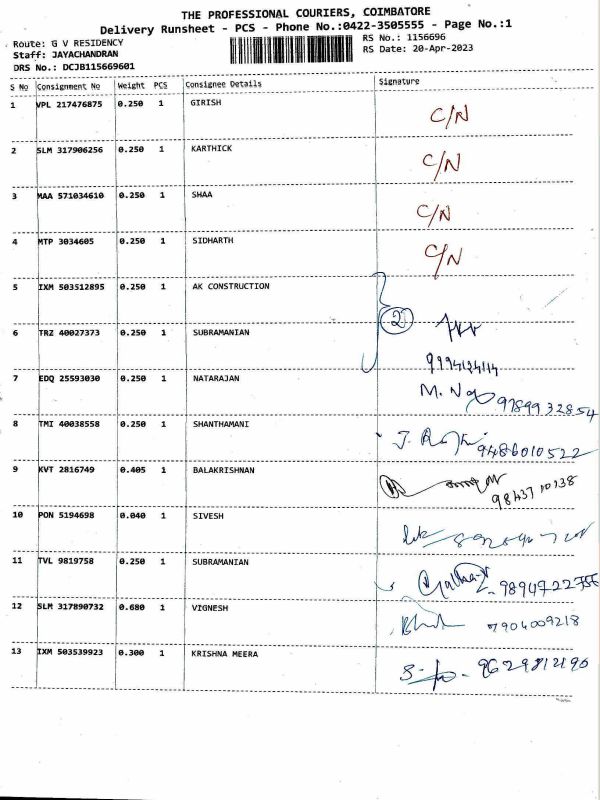 THE PROFESSIONAL COURIERS, COIMBATORE
Delivery Runsheet - PCS - Phone No.:0422-3505555 - Page No.:1
Route: G V RESIDENCY
RS No.: 1156696
Staff: JAYACHANDRAN
RS Date: 20-Apr-2023
DRS No.: DCJB115669601
S No Consignment No Weight PCS Consignee Details Signature
1 VPL 217476875 0.250 1 GIRISH C/N
2 SLM 317906256 0.250 1 KARTHICK C/N
3 MAA 571034610 0.250 1 SHAA C/N
4 MTP 3034605 0.250 1 SIDHARTH C/N
5 IXM 503512895 0.250 1 AK CONSTRUCTION
2
6 TRZ 40027373 0.250 1 SUBRAMANIAN
7 EDQ 25593030 0.250 1 NATARAJAN M. 9789932854
8 TMI 40038558 0.250 1 SHANTHAMANI J. 9486010522
9 KVT 2816749 0.405 1 BALAKRISHNAN
10 PON 5194698 0.040 1 SIVESH
11 TVL 9819758 0.250 1 SUBRAMANIAN
12 SLM 317890732 0.680 1 VIGNESH 7904009218
13 IXM 503539923 0.300 1 KRISHNA MEERA